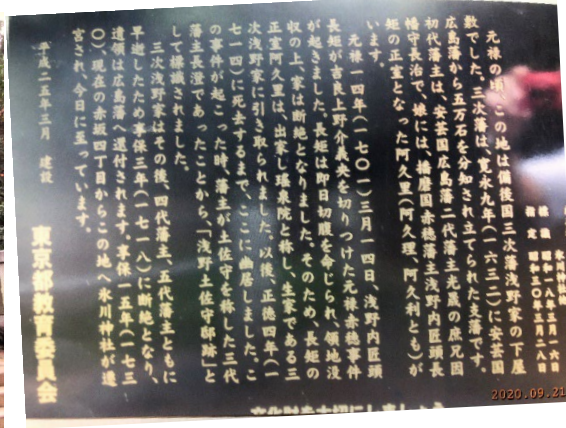 標識 昭和一八年三月一六日
指定 昭和三〇年三月二八日
元禄の頃、この地は備後国三次藩浅野家の下屋
敷でした。三次藩は、寛永九年(一六三二)に安芸国
広島藩から五万石を分知され立てられた支藩です。
初代藩主は、安芸国広島藩二代藩主光晟の庶兄因
幡守長治で、娘には、播磨国赤穂藩主浅野内匠頭長
矩の正室となった阿久里(阿久理、阿久利とも)が
います。
元禄一四年(一七〇一)三月一四日、浅野内匠頭
長矩が吉良上野介義央を切りつけた元禄赤穂事件
が起きました。長矩は即日切腹を命じられ、領地没
収の上、家は断絶となりました。そのため、長矩の
正室阿久里は、出家し瑶泉院と称し、生家である三
次浅野家に引き取られました。以後、正徳四年(一
七一四)に死去するまで、ここに幽居しました。こ
の事件が起こった時、藩主が土佐守を称した三代
藩主長澄であったことから、「浅野土佐守邸跡」と
して標識されました。
三次浅野家はその後、四代藩主、五代藩主ともに
早逝したため享保三年(一七一八)に断絶となり、
遺領は広島藩へ還付されます。享保一五年(一七三
〇)、現在の赤坂四丁目からこの地へ氷川神社が遷
宮され、今日に至っています。
平成二五年三月 建設
東京都教育委員会
2020.09.21